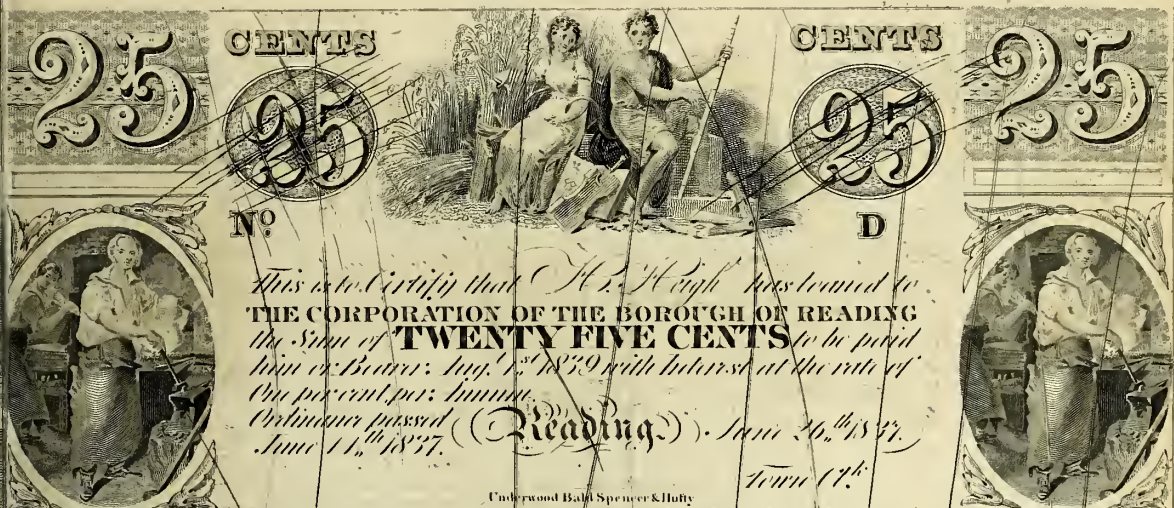 25 CENTS CENTS 25
25 25
No. D
This is to Certify that H. High has loaned to
THE CORPORATION OF THE BOROUGH OF READING
the Sum of TWENTY FIVE CENTS to be paid
him or Bearer. Aug. 1st 1839 with Interest at the rate of
One per cent, per: Annum.
Ordinance passed
June 14th 1837. Reading. June 26th 1837.
Town Clk
Underwood Bald Spencer & Hufty